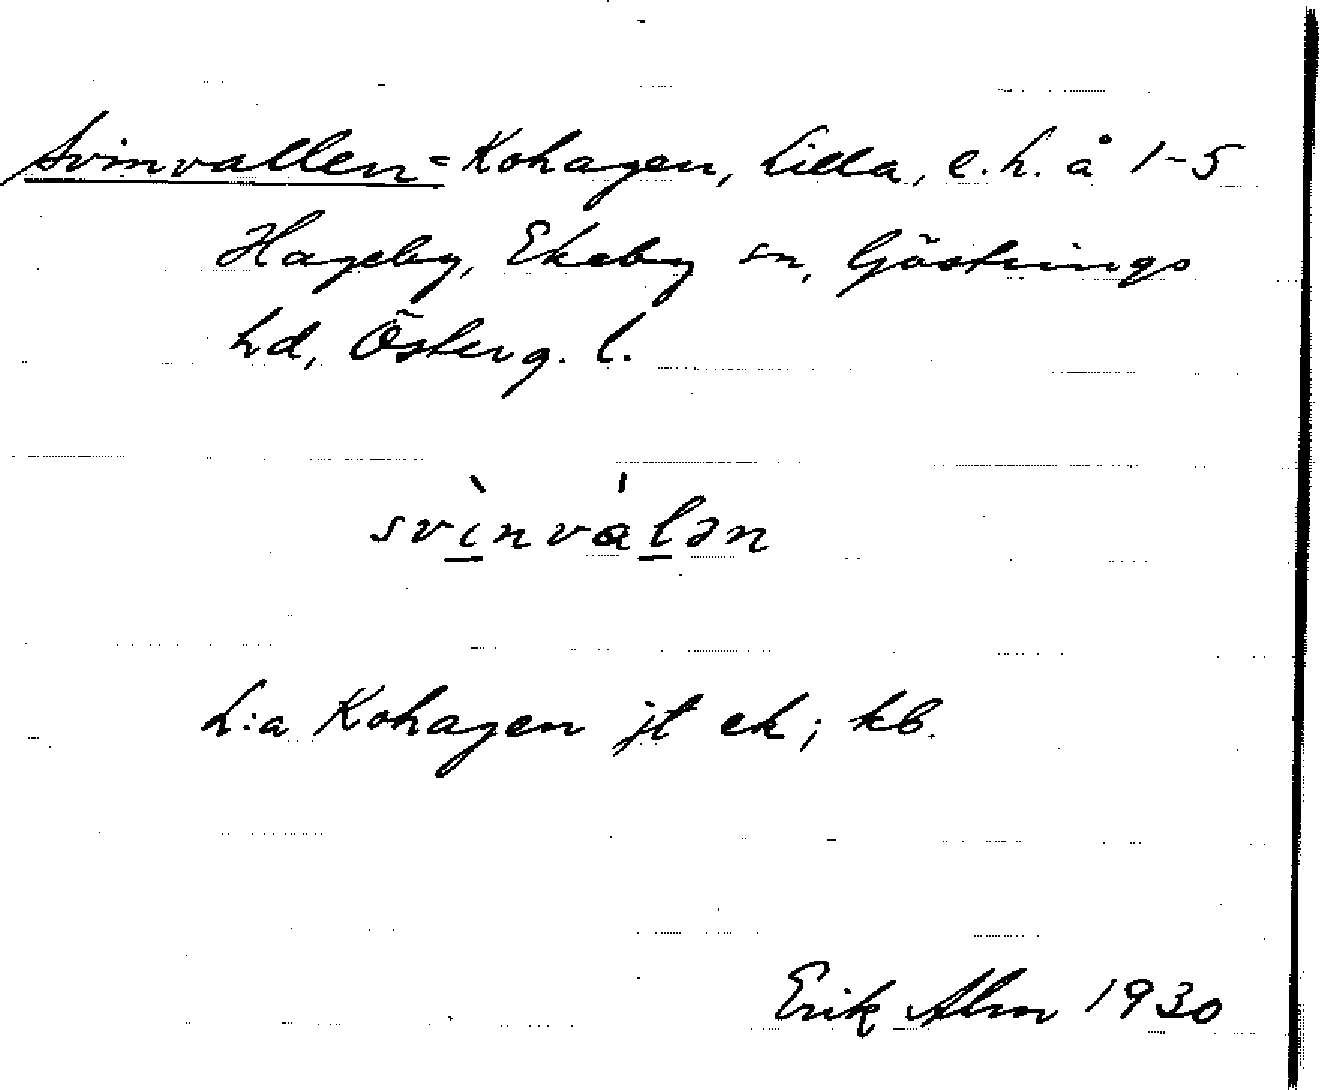 Svinvallen = Kohagen, Lilla, e.h. å 1-5
Hageby, Ekeby sn, Göstrings
hd, Österg. l.
svìnvàlən
L:a Kohagen jt ek; kb.
Erik Alm 1930